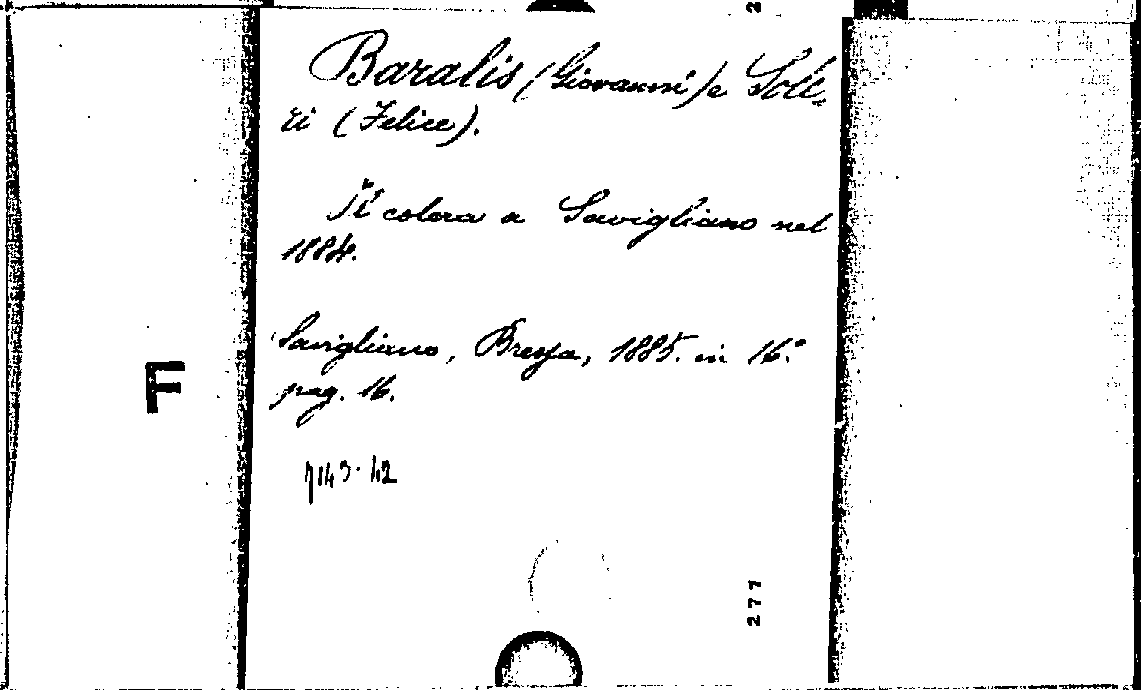 Baralis (Giovanni) e Sole-
ri (Felice).
Il colera a Savigliano nel
1884.
Savigliano, Bressa, 1885. in 16.°
pag. 16.
7143.42
F
277
2